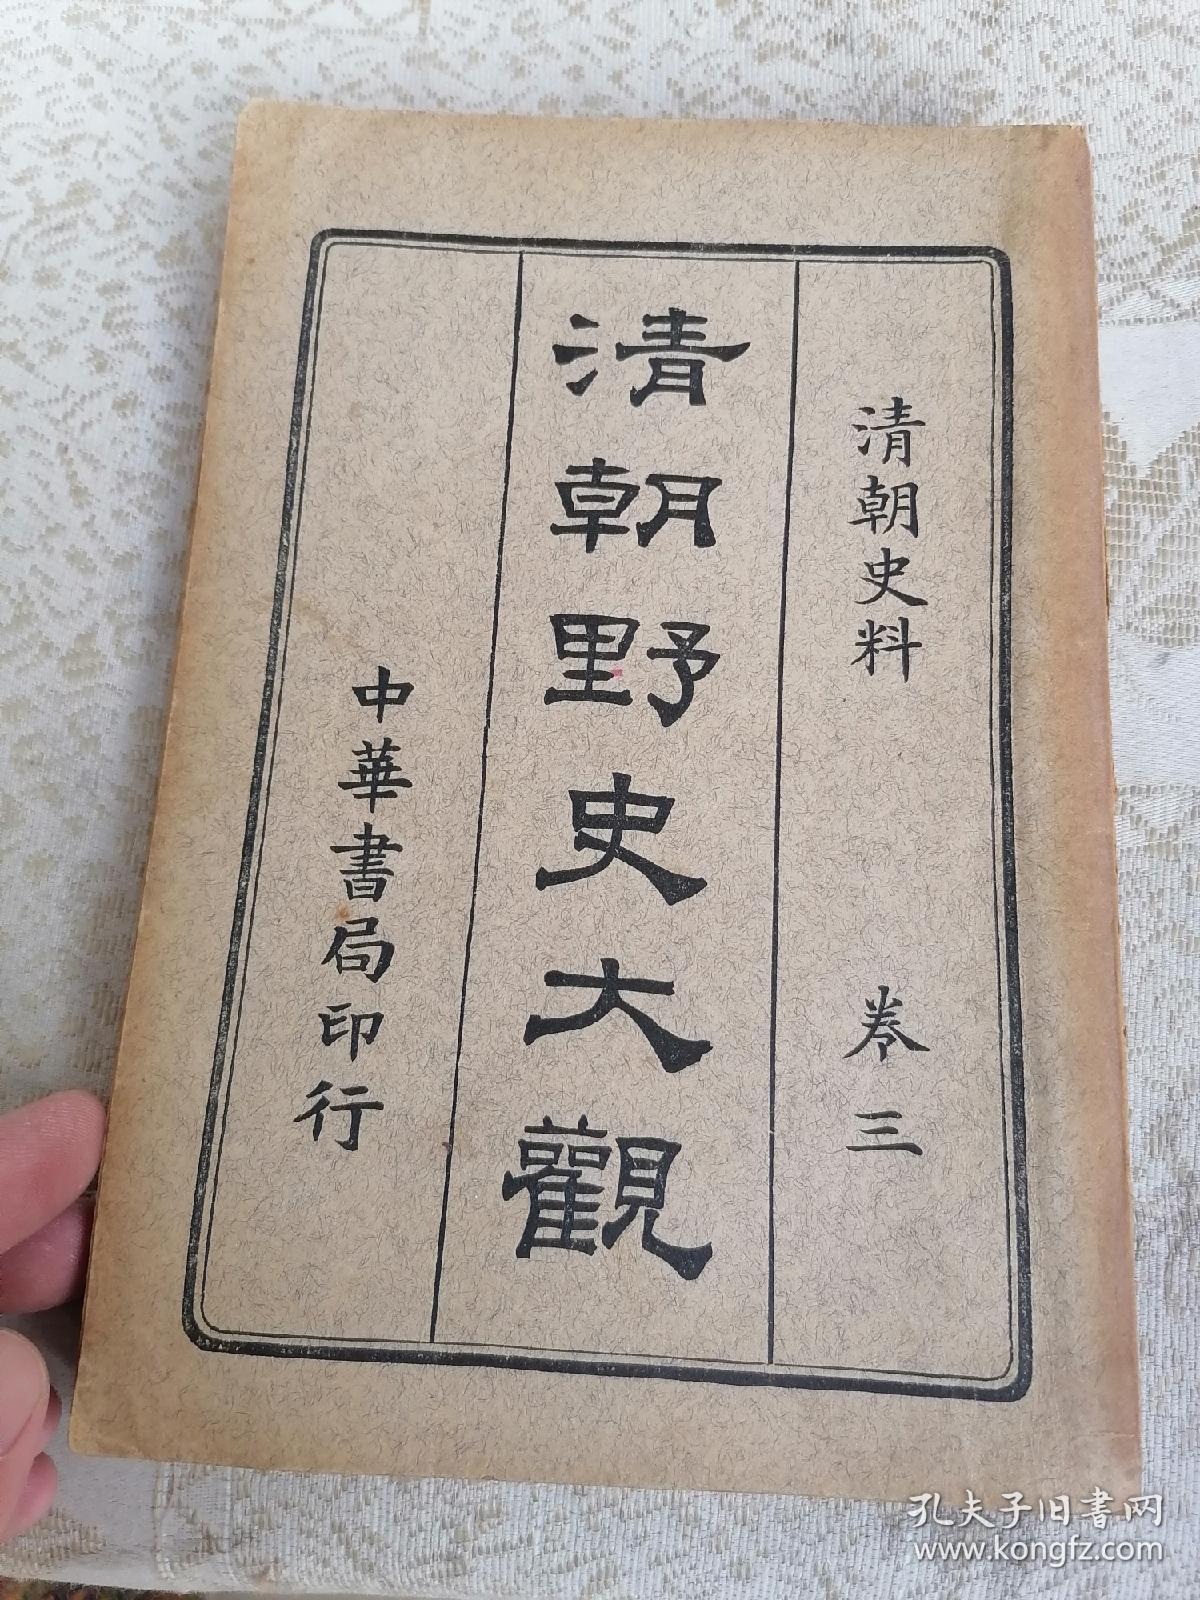 清朝史料 卷三
清朝野史大觀
中華書局印行
孔夫子旧书网
www.kongfz.com